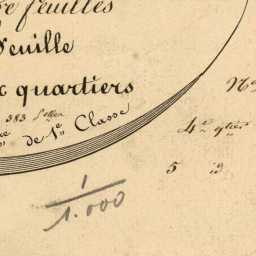 feuilles
feuille
quartiers
383
de 1re Classe
No
4e qtier
5 id
1
1.000